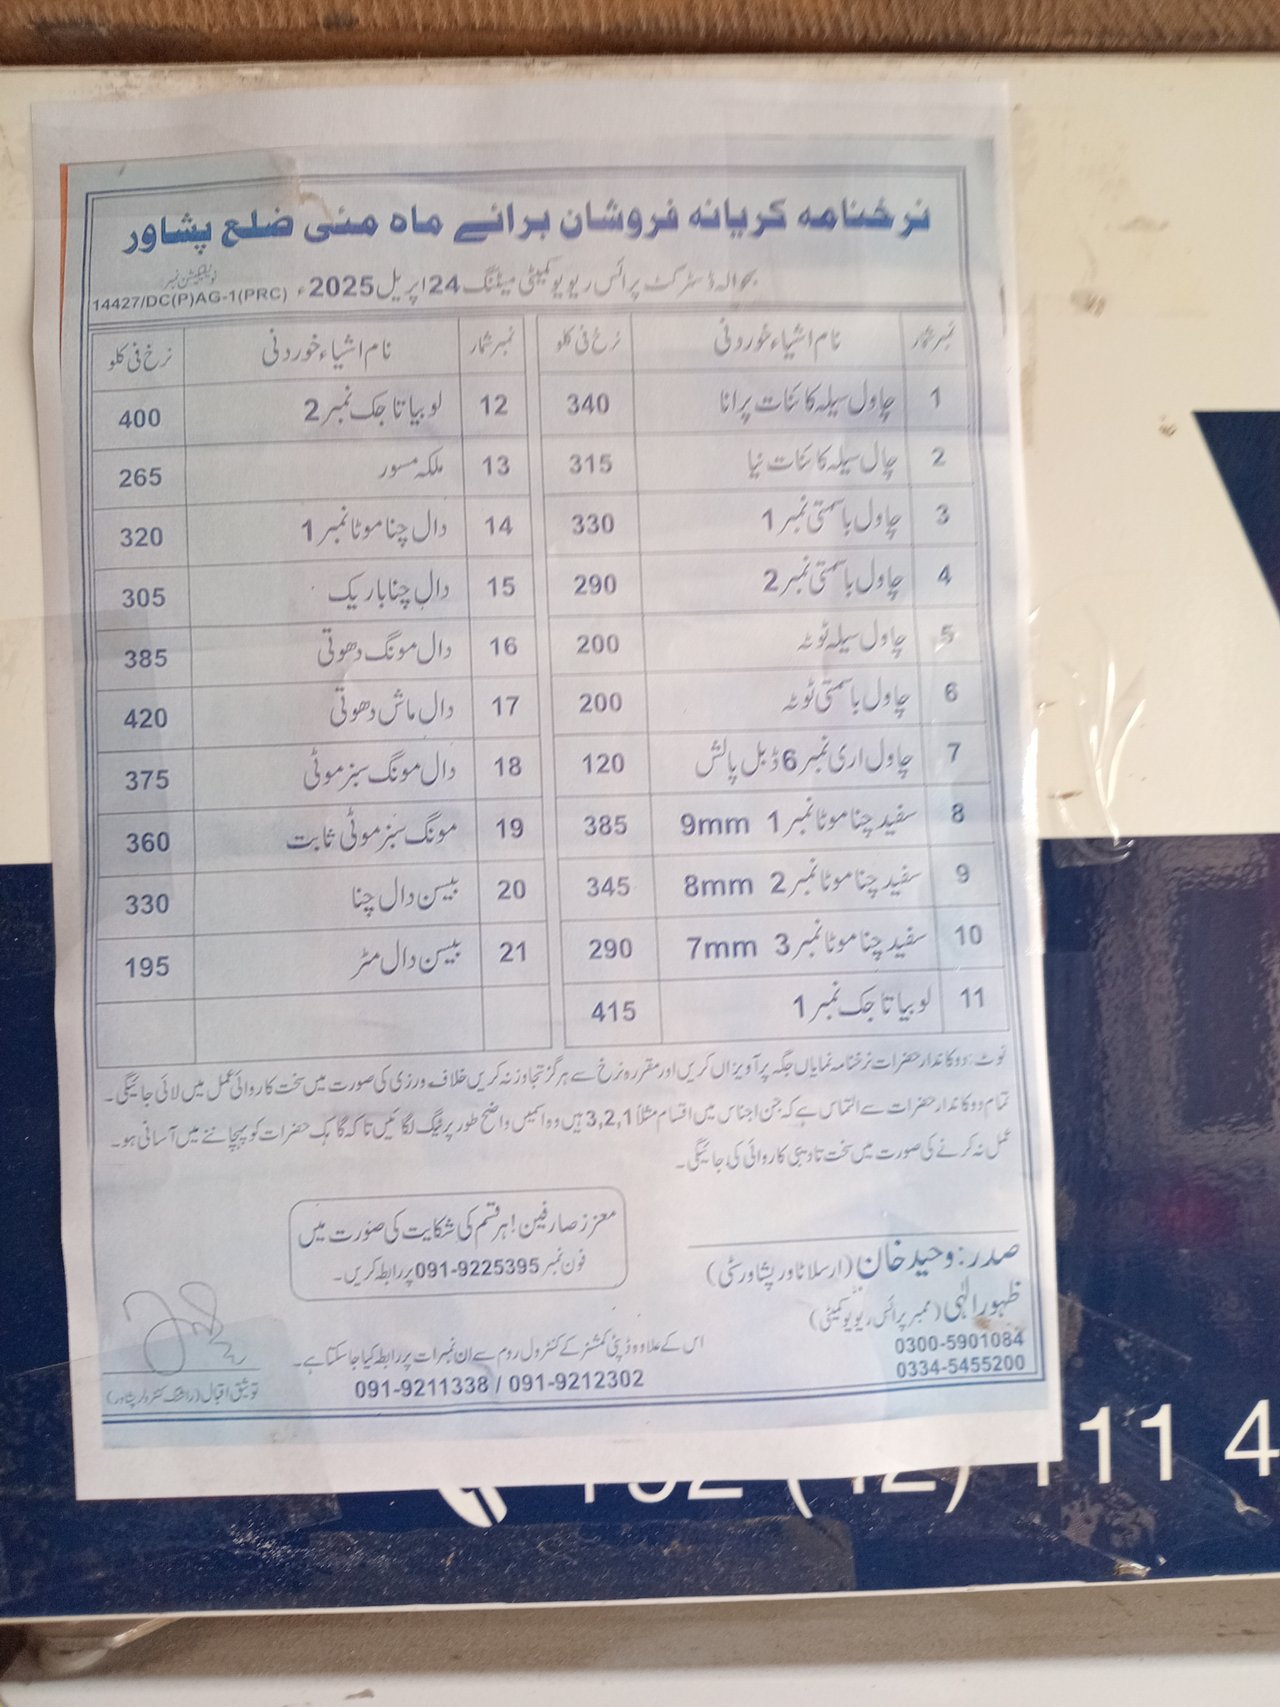 نرخنامہ کریانہ فروشان برائے ماہ مئی ضلع پشاور
بحوالہ ڈسٹرکٹ پرائس ریویو کمیٹی میٹنگ 24 اپریل 2025ء
نوٹیفکیشن نمبر
14427/DC(P)AG-1(PRC)
نمبر شمار نام اشیاء خوردنی نرخ فی کلو نمبر شمار نام اشیاء خوردنی نرخ فی کلو
1 چاول سیلہ کائنات پرانا 340 12 لوبیا تاجک نمبر 2 400
2 چال سیلہ کائنات نیا 315 13 ملکہ مسور 265
3 چاول باسمتی نمبر 1 330 14 دال چنا موٹا نمبر 1 320
4 چاول باسمتی نمبر 2 290 15 دال چنا باریک 305
5 چاول سیلہ ٹوٹہ 200 16 دال مونگ دھوتی 385
6 چاول باسمتی ٹوٹہ 200 17 دال ماش دھوتی 420
7 چاول اری نمبر 6 ڈبل پالش 120 18 دال مونگ سبز موٹی 375
8 سفید چنا موٹا نمبر 1 9mm 385 19 مونگ سبز موٹی ثابت 360
9 سفید چنا موٹا نمبر 2 8mm 345 20 بیسن دال چنا 330
10 سفید چنا موٹا نمبر 3 7mm 290 21 بیسن دال مٹر 195
11 لوبیا تاجک نمبر 1 415
نوٹ: دوکاندار حضرات نرخنامہ نمایاں جگہ پر آویزاں کریں اور مقررہ نرخ سے ہرگز تجاوز نہ کریں خلاف ورزی کی صورت میں سخت کاروائی عمل میں لائی جائیگی۔
تمام دوکاندار حضرات سے التماس ہے کہ جن اجناس میں اقسام مثلاً 3,2,1 ہیں وہ اسمیں واضح طور پر ٹیگ لگائیں تاکہ گاہک حضرات کو پہچاننے میں آسانی ہو۔
عمل نہ کرنے کی صورت میں سخت تادیبی کاروائی کی جائیگی۔
معزز صارفین! ہر قسم کی شکایت کی صورت میں
فون نمبر 091-9225395 پر رابطہ کریں۔
صدر: وحید خان (ارسلا ٹاور پشاور سٹی)
ظہور الٰہی (ممبر پرائس ریویو کمیٹی)
0300-5901084
0334-5455200
اس کے علاوہ ڈپٹی کمشنر کے کنٹرول روم سے ان نمبرات پر رابطہ کیا جا سکتا ہے۔
091-9211338 / 091-9212302
توثیق اقبال (راشننگ کنٹرولر پشاور)
111 4